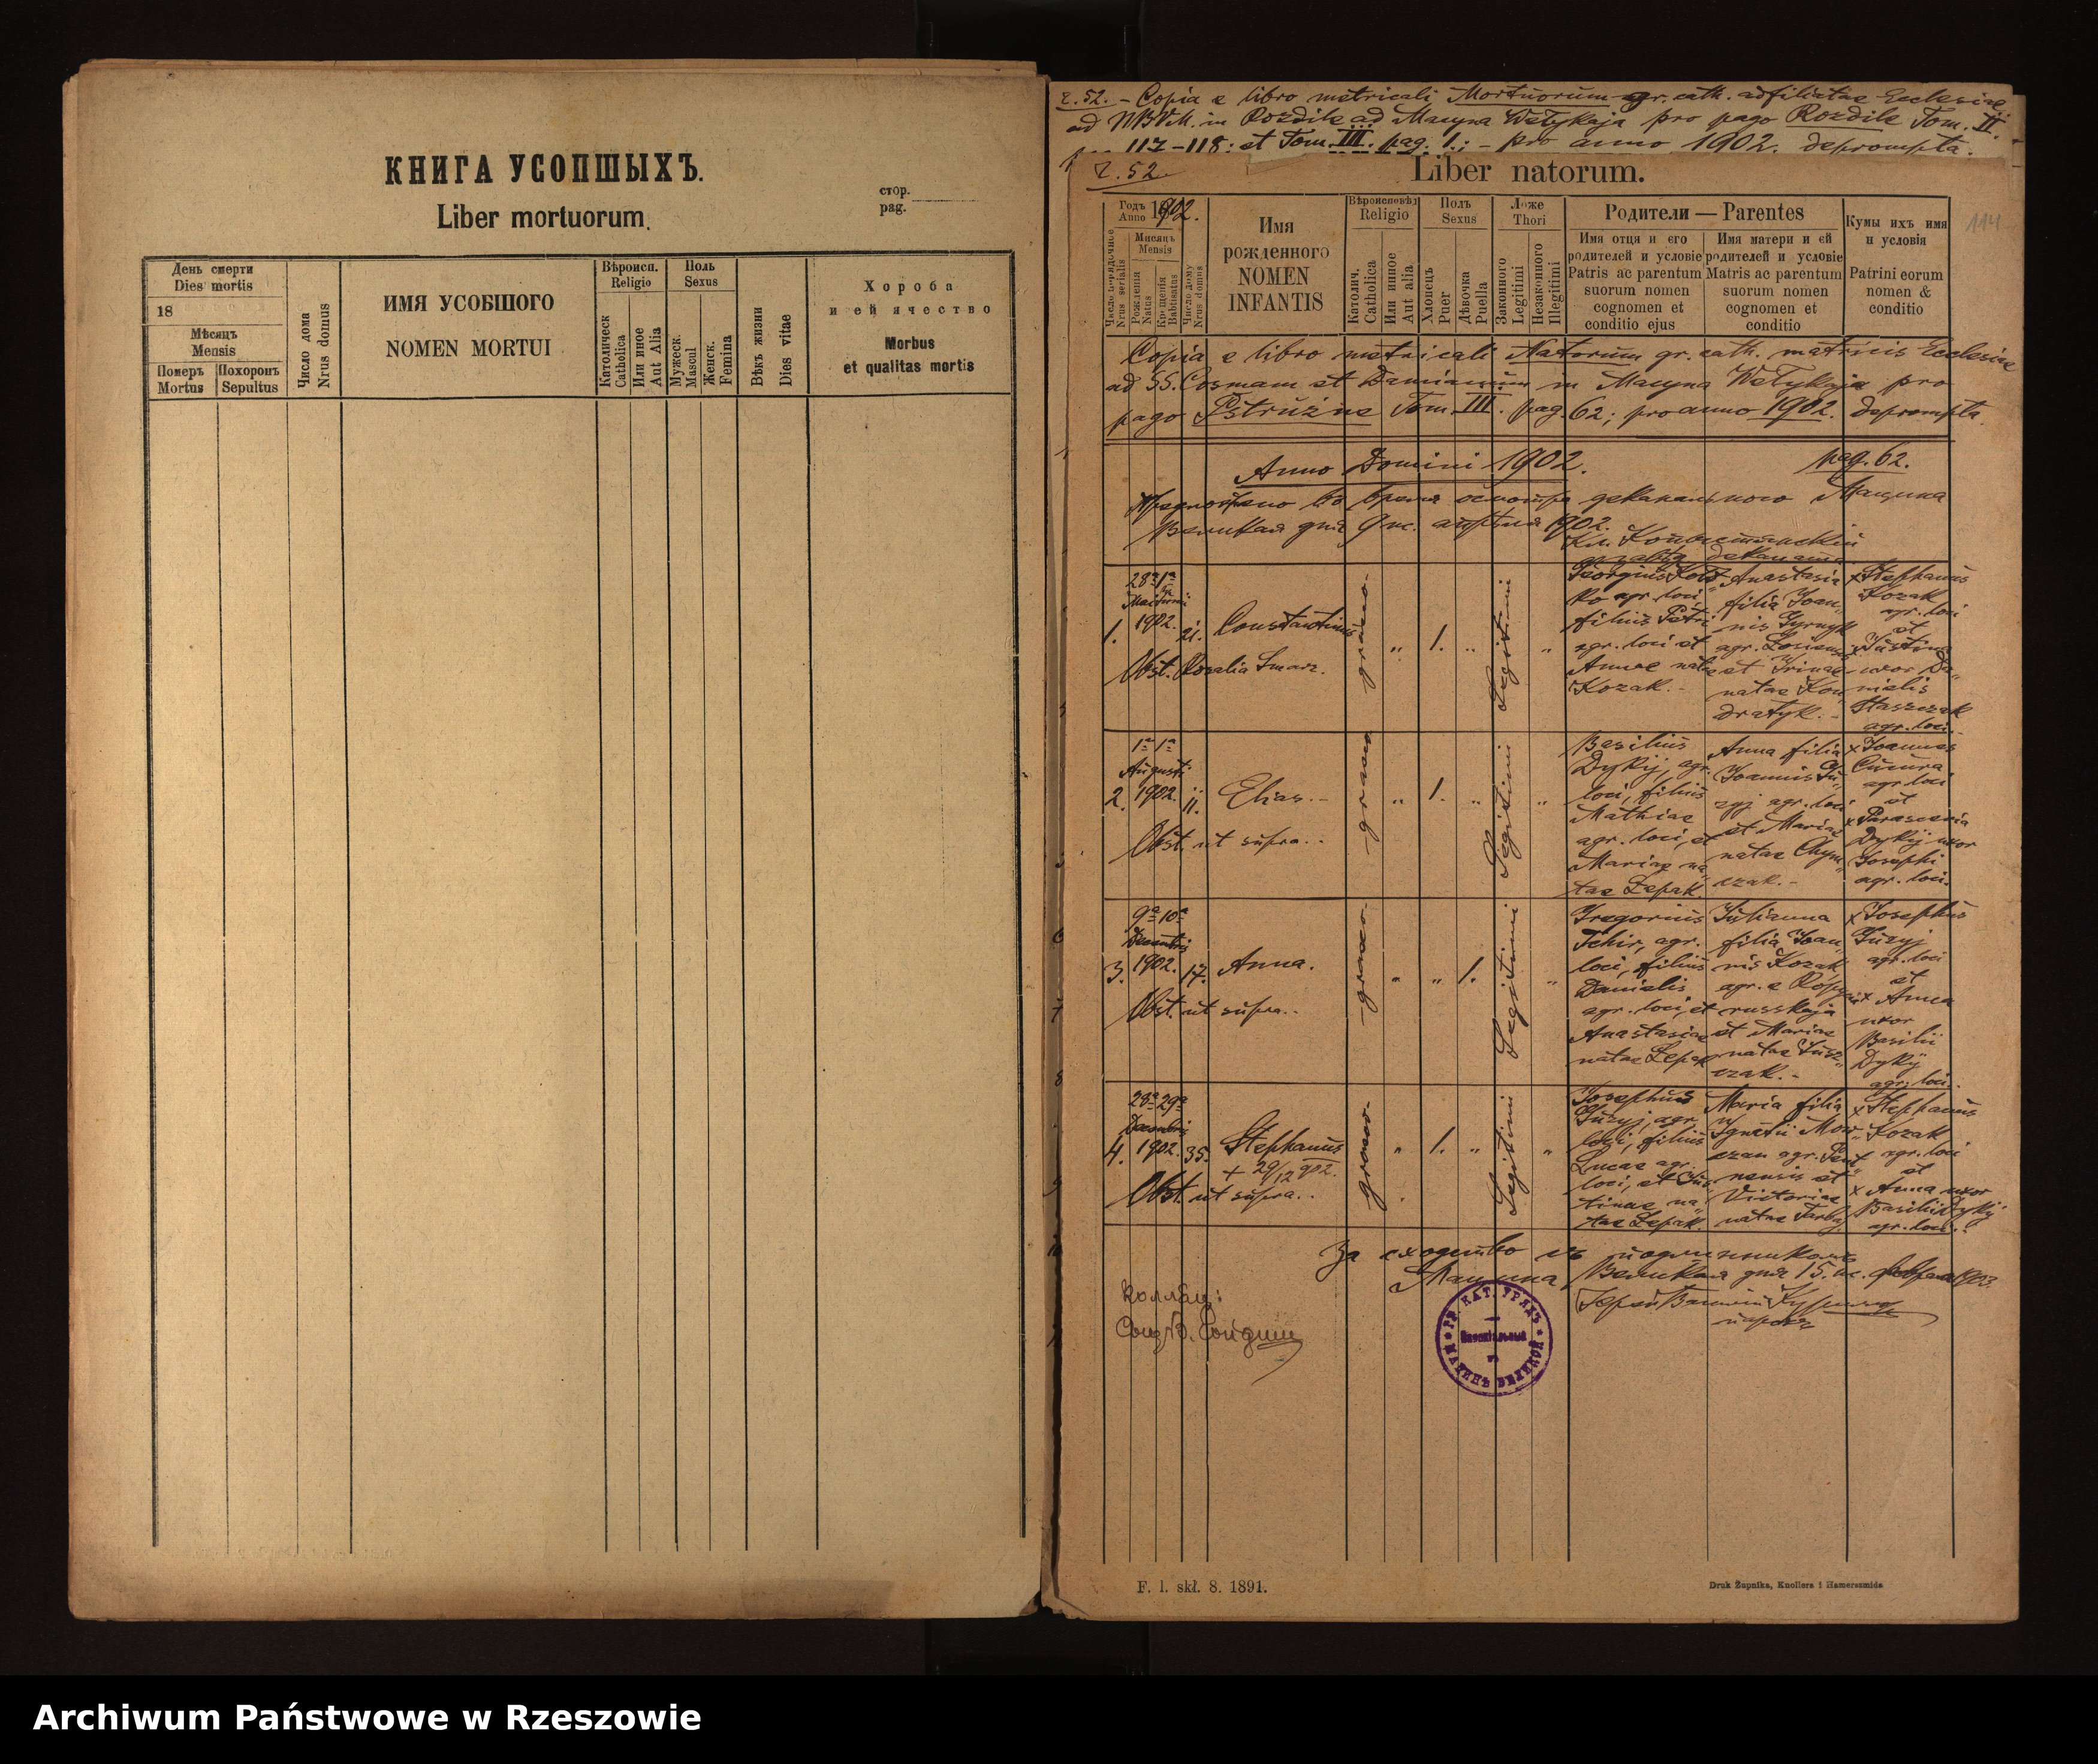 КНИГА УСОПШЫХЪ.
Liber mortuorum.
стор.
pag.
День смерти
Dies mortis
18
Мѣсяцъ
Mensis
Померъ
Mortus
Похоронъ
Sepultus
Число дома
Nrus domus
ИМЯ УСОБШОГО
NOMEN MORTUI
Вѣроисп.
Religio
Католическ
Catholica
Или иное
Aut Alia
Полъ
Sexus
Мужеск.
Mascul
Женск.
Femina
Вѣкъ жизни
Dies vitae
Хороба
и ей ячество
Morbus
et qualitas mortis
L. 52. - Copia e libro metricali Mortuorum gr. cath. adfiliatae Ecclesiae
ad NBVM. in Rozdile ad Macyna Wełykaja pro pago Rozdile Tom. II.
117-118: et Tom. III. pag. 1.; - pro anno 1902. deprompta.
L. 52.
Liber natorum.
114
Годъ
Anno 1902.
Число порядочное
Nrus serialis
Мисяцъ
Mensis
Рожденія
Natus
Крещенія
Babtisatus
Число дому
Nrus domus
Имя
рожденного
NOMEN
INFANTIS
Вѣроисповѣд
Religio
Католич.
Catholica
Или инное
Aut alia
Полъ
Sexus
Хлопецъ
Puer
Дѣвочка
Puella
Ложе
Thori
Законного
Legitimi
Незаконного
Illegitimi
Родители — Parentes
Имя отця и его
родителей и условіе
Patris ac parentum
suorum nomen
cognomen et
conditio ejus
Имя матери и ей
родителей и условіе
Matris ac parentum
suorum nomen
cognomen et
conditio
Кумы ихъ имя
и условія
Patrini eorum
nomen &
conditio
Copia e libro metricali Natorum gr. cath. matricis Ecclesiae
ad SS. Cosmam et Damianum in Macyna Wełykaja pro
pago Pstrużne Tom. III. pag. 62; pro anno 1902. deprompta.
Anno Domini 1902.
pag. 62.
во время осмотра деканального Мацина
Великая дня 9 нс. 1902.
28ª 1ª
1. 1902. 21. Constantinus
graeco-
" 1. " Legitimi "
Obst. Rozalia Smarz.
Georgius
agr. loci
filius Petri
agr. loci et
Annae natae
Kozak.-
Anastasia
filia Joan„
nis Hyrnyk
agr.
et Irinae
natae Kon„
dratyk.-
x Stephanus
Kozak
agr. loci
et
x Justina
uxor Da„
nielis
Staszczak
agr. loci.
1ª 1ª
Augusti
2. 1902. 11. Elias.-
graeco
" 1. " Legitimi "
Obst. ut supra..
Basilius
Dykij, agr.
loci, filius
Mathiae
agr. loci, et
Mariae na„
tae Łepak.
Anna filia
Joannis Hu„
zyj agr. loci
et Mariae
natae Chym„
czak.-
x Joannes
Cucura
agr. loci
et
x Parascevia
Dykij uxor
Josephi
agr. loci.
9ª 10ª
Decembris
3. 1902. 17. Anna.
graeco-
" " 1. Legitimi "
Obst. ut supra..
Gregorius
Tehir, agr.
loci, filius
Danielis
agr. loci, et
Anastasiae
natae Łepak
Julianna
filia Joan„
nis Kozak
agr. e Ropycia
russkaja
et Mariae
natae Husz„
czak.-
x Josephus
Huzyj
agr. loci
et
x Anna
uxor
Basilii
Dykij
agr. loci.
28ª 29ª
Decembris
4. 1902. 35. Stephanus
+ 29/12 902.
graeco-
" 1. " Legitimi "
Obst. ut supra..
Josephus
Huzyj, agr.
loci, filius
Lucae agr.
loci, et Jus„
tinae na„
tae Łepak.
Maria filia
Ignatii Mow„
czan agr.
nensis et
Victoriae
natae
x Stephanus
Kozak
agr. loci
et
x Anna uxor
Basilii Dykij
agr. loci.
За сходство съ подлинникомъ
Мацина Великая дня 15. нс. 1903.
Іерей Василій
парохъ
ГР. КАТ. УРЯДЪ
Парохіяльный
въ
МАЦИНѢ ВЕЛИКОЙ
F. l. skł. 8. 1891.
Druk Żupnika, Knollera i Hamerszmida
Archiwum Państwowe w Rzeszowie